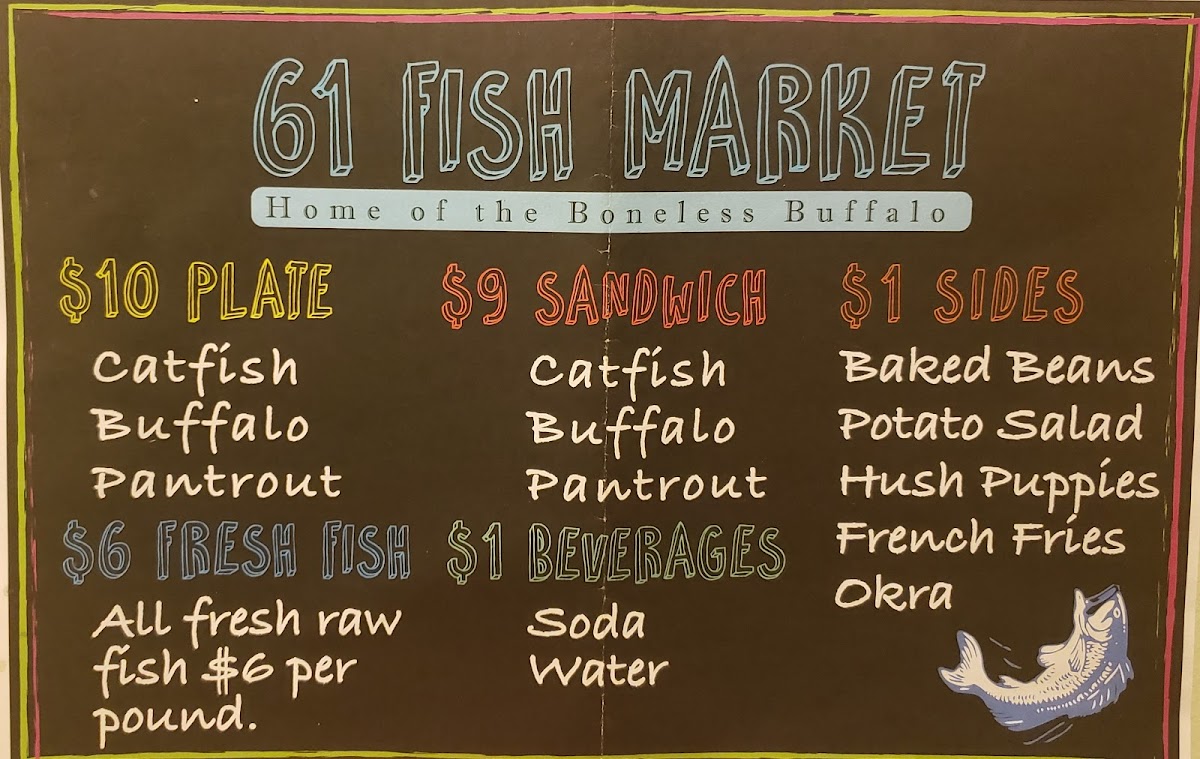 61 FISH MARKET
Home of the Boneless Buffalo
$10 PLATE
Catfish
Buffalo
Pantrout
$9 SANDWICH
Catfish
Buffalo
Pantrout
$1 SIDES
Baked Beans
Potato Salad
Hush Puppies
French Fries
Okra
$6 FRESH FISH
All fresh raw
fish $6 per
pound.
$1 BEVERAGES
Soda
Water